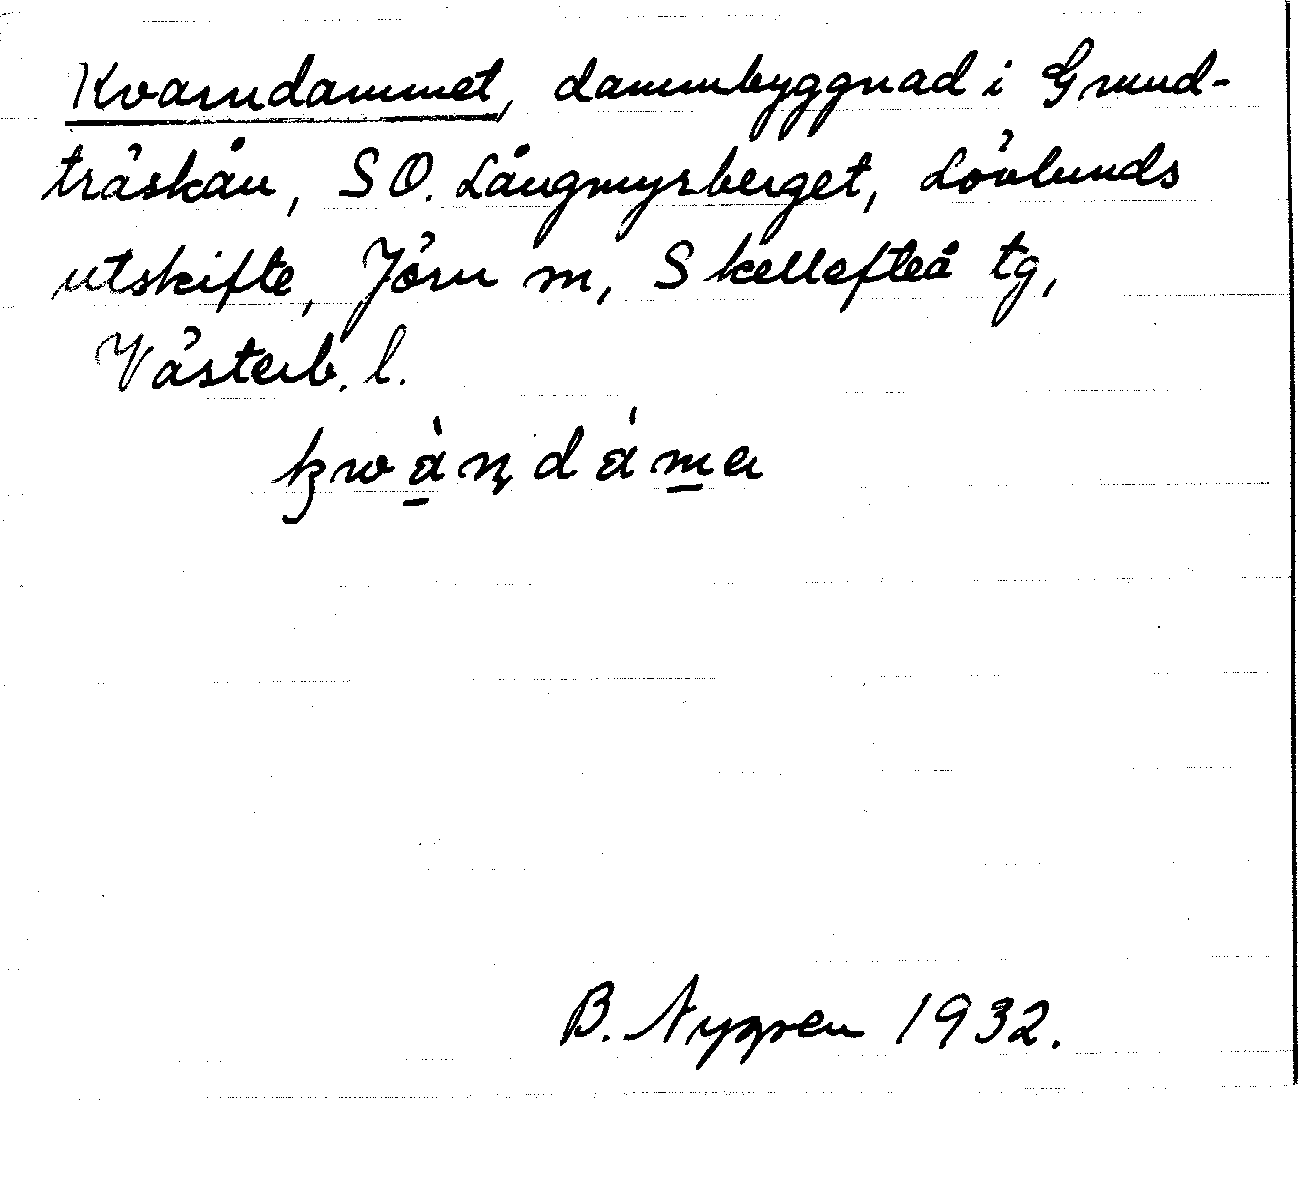 Kvarndammet, dammbyggnad i Grund-
träskån, SO. Långmyrberget, Lövlunds
utskifte, Jörn sn, Skellefteå tg,
Västerb. l.
kwàṇdáma
B. Nygren 1932.